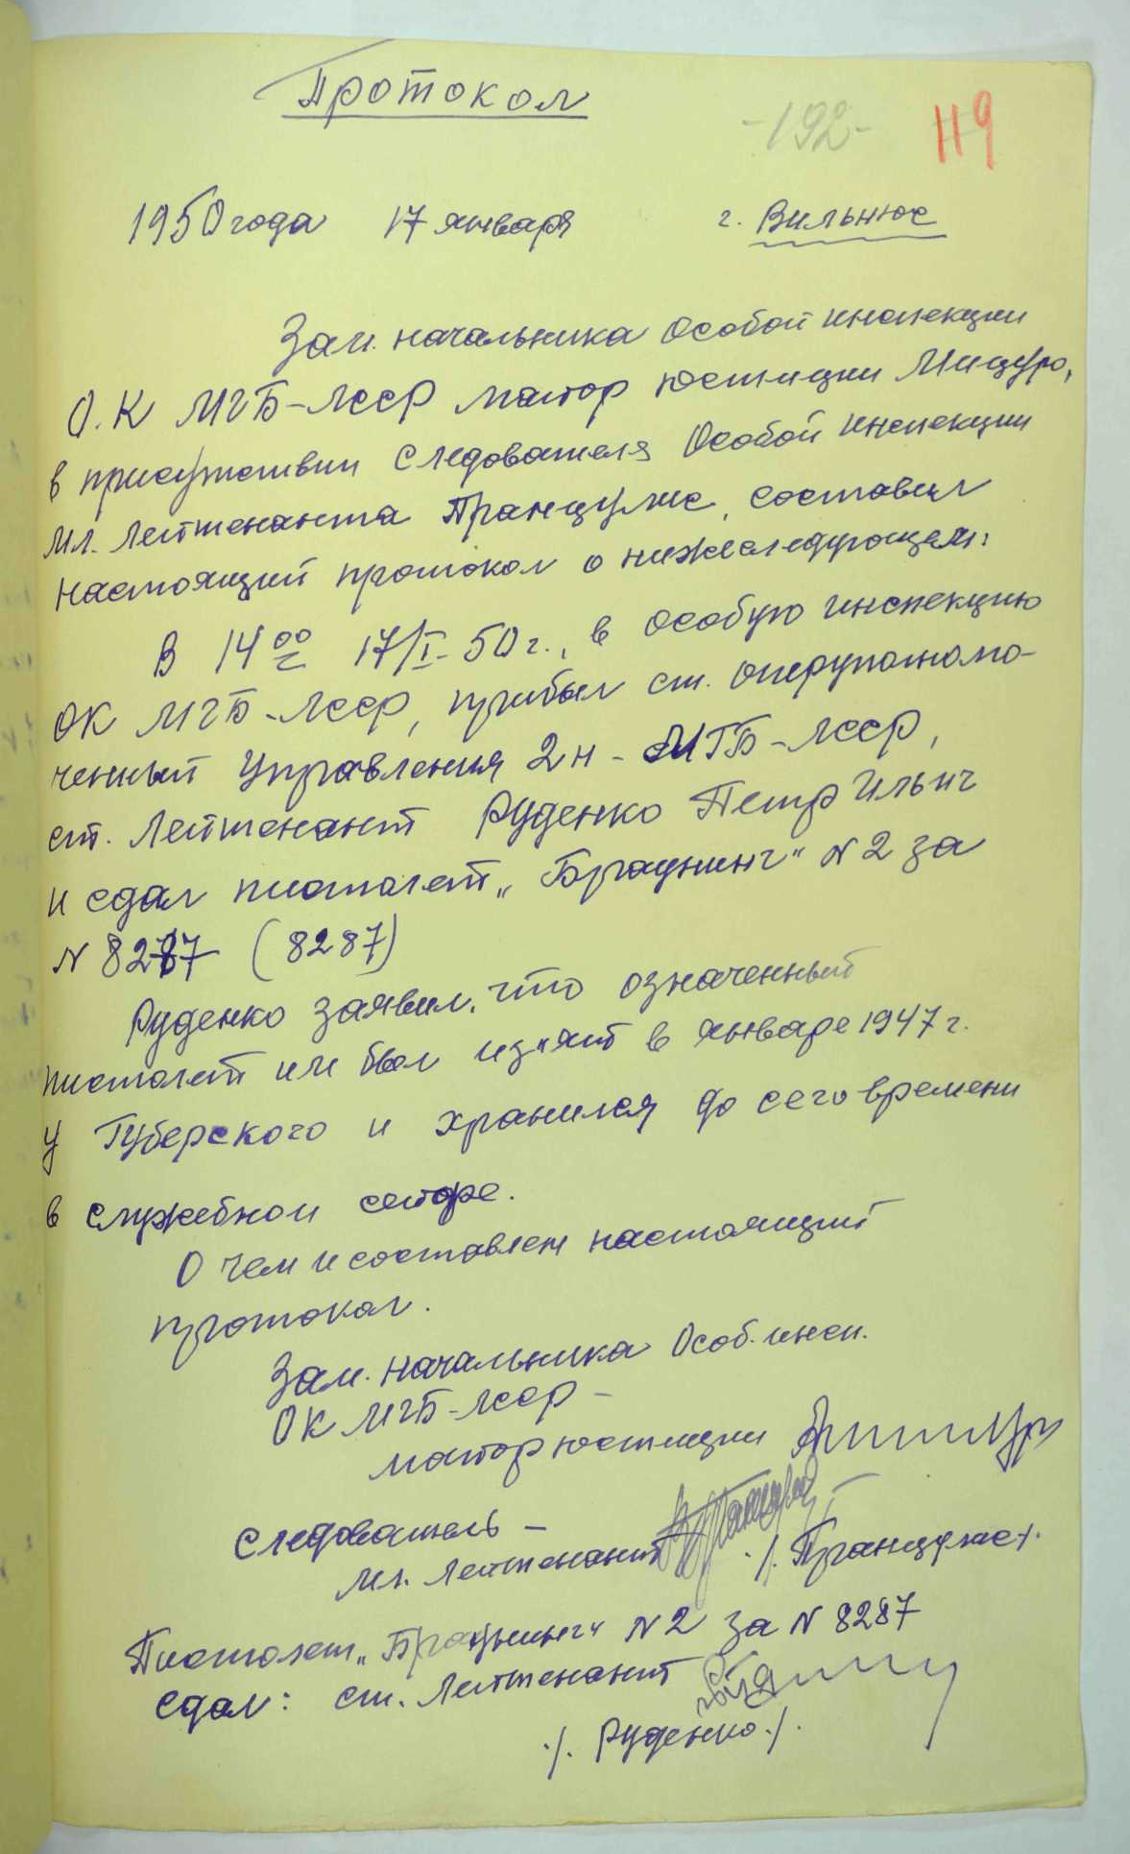 Протокол
-192- 119
1950 года 17 января г. Вильнюс
Зам. начальника Особой инспекции
О.К МГБ-ЛССР майор юстиции Мицуро,
в присутствии Следователя Особой инспекции
мл. Лейтенанта Пранцужс, составил
настоящий протокол о нижеследующем:
В 14 00 17/I-50 г., в Особую инспекцию
ОК МГБ-ЛССР, прибыл ст. оперуполномо-
ченный Управления 2н-МГБ-ЛССР,
ст. Лейтенант Руденко Петр Ильич
и сдал пистолет „Браунинг" N 2 за
N 8287 (8287)
Руденко заявил, что означенный
пистолет им был изъят в январе 1947 г.
у Губерского и хранился до сего времени
в служебном сейфе.
О чем и составлен настоящий
протокол.
Зам. начальника Особ. инсп.
ОК МГБ-ЛССР -
майор юстиции
Следователь -
мл. Лейтенант ./. Пранцужс ./.
Пистолет „Браунинг" N 2 за N 8287
сдал: ст. Лейтенант
./. Руденко ./.